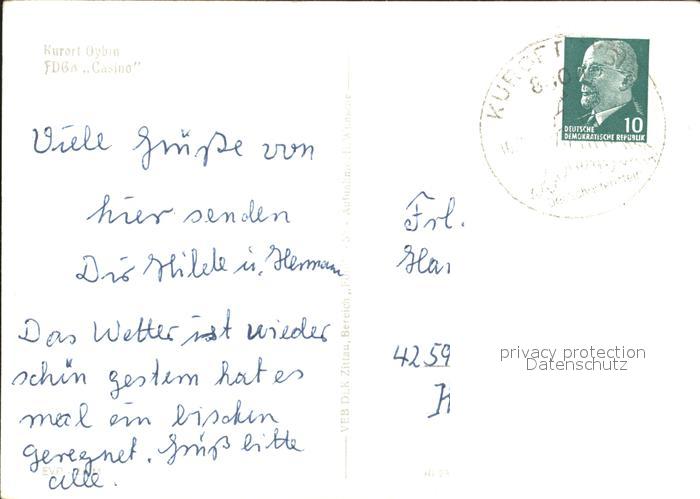 Kurort Oybin
FDGB „Casino"
Viele Grüße von
hier senden
Dir Hilde u. Hermann
Das Wetter ist wieder
schön gestern hat es
mal ein bischen
geregnet. Grüß bitte
alle.
VEB DLK Zittau, Bereich
Aufnahme
KURORT
DEUTSCHE
DEMOKRATISCHE REPUBLIK
10
Frl.
Han
4259
H
privacy protection
Datenschutz